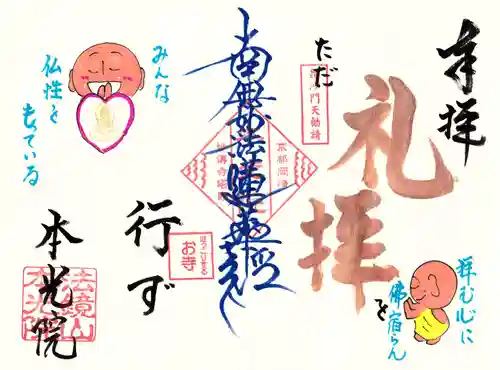 奉拝
拝む心に
佛宿らん
礼拝を
ただ
門天勧請
南無妙法蓮華経
京都岡崎
行ず
お寺
みんな
仏性を
もっている
本光院
法鏡山
本光院